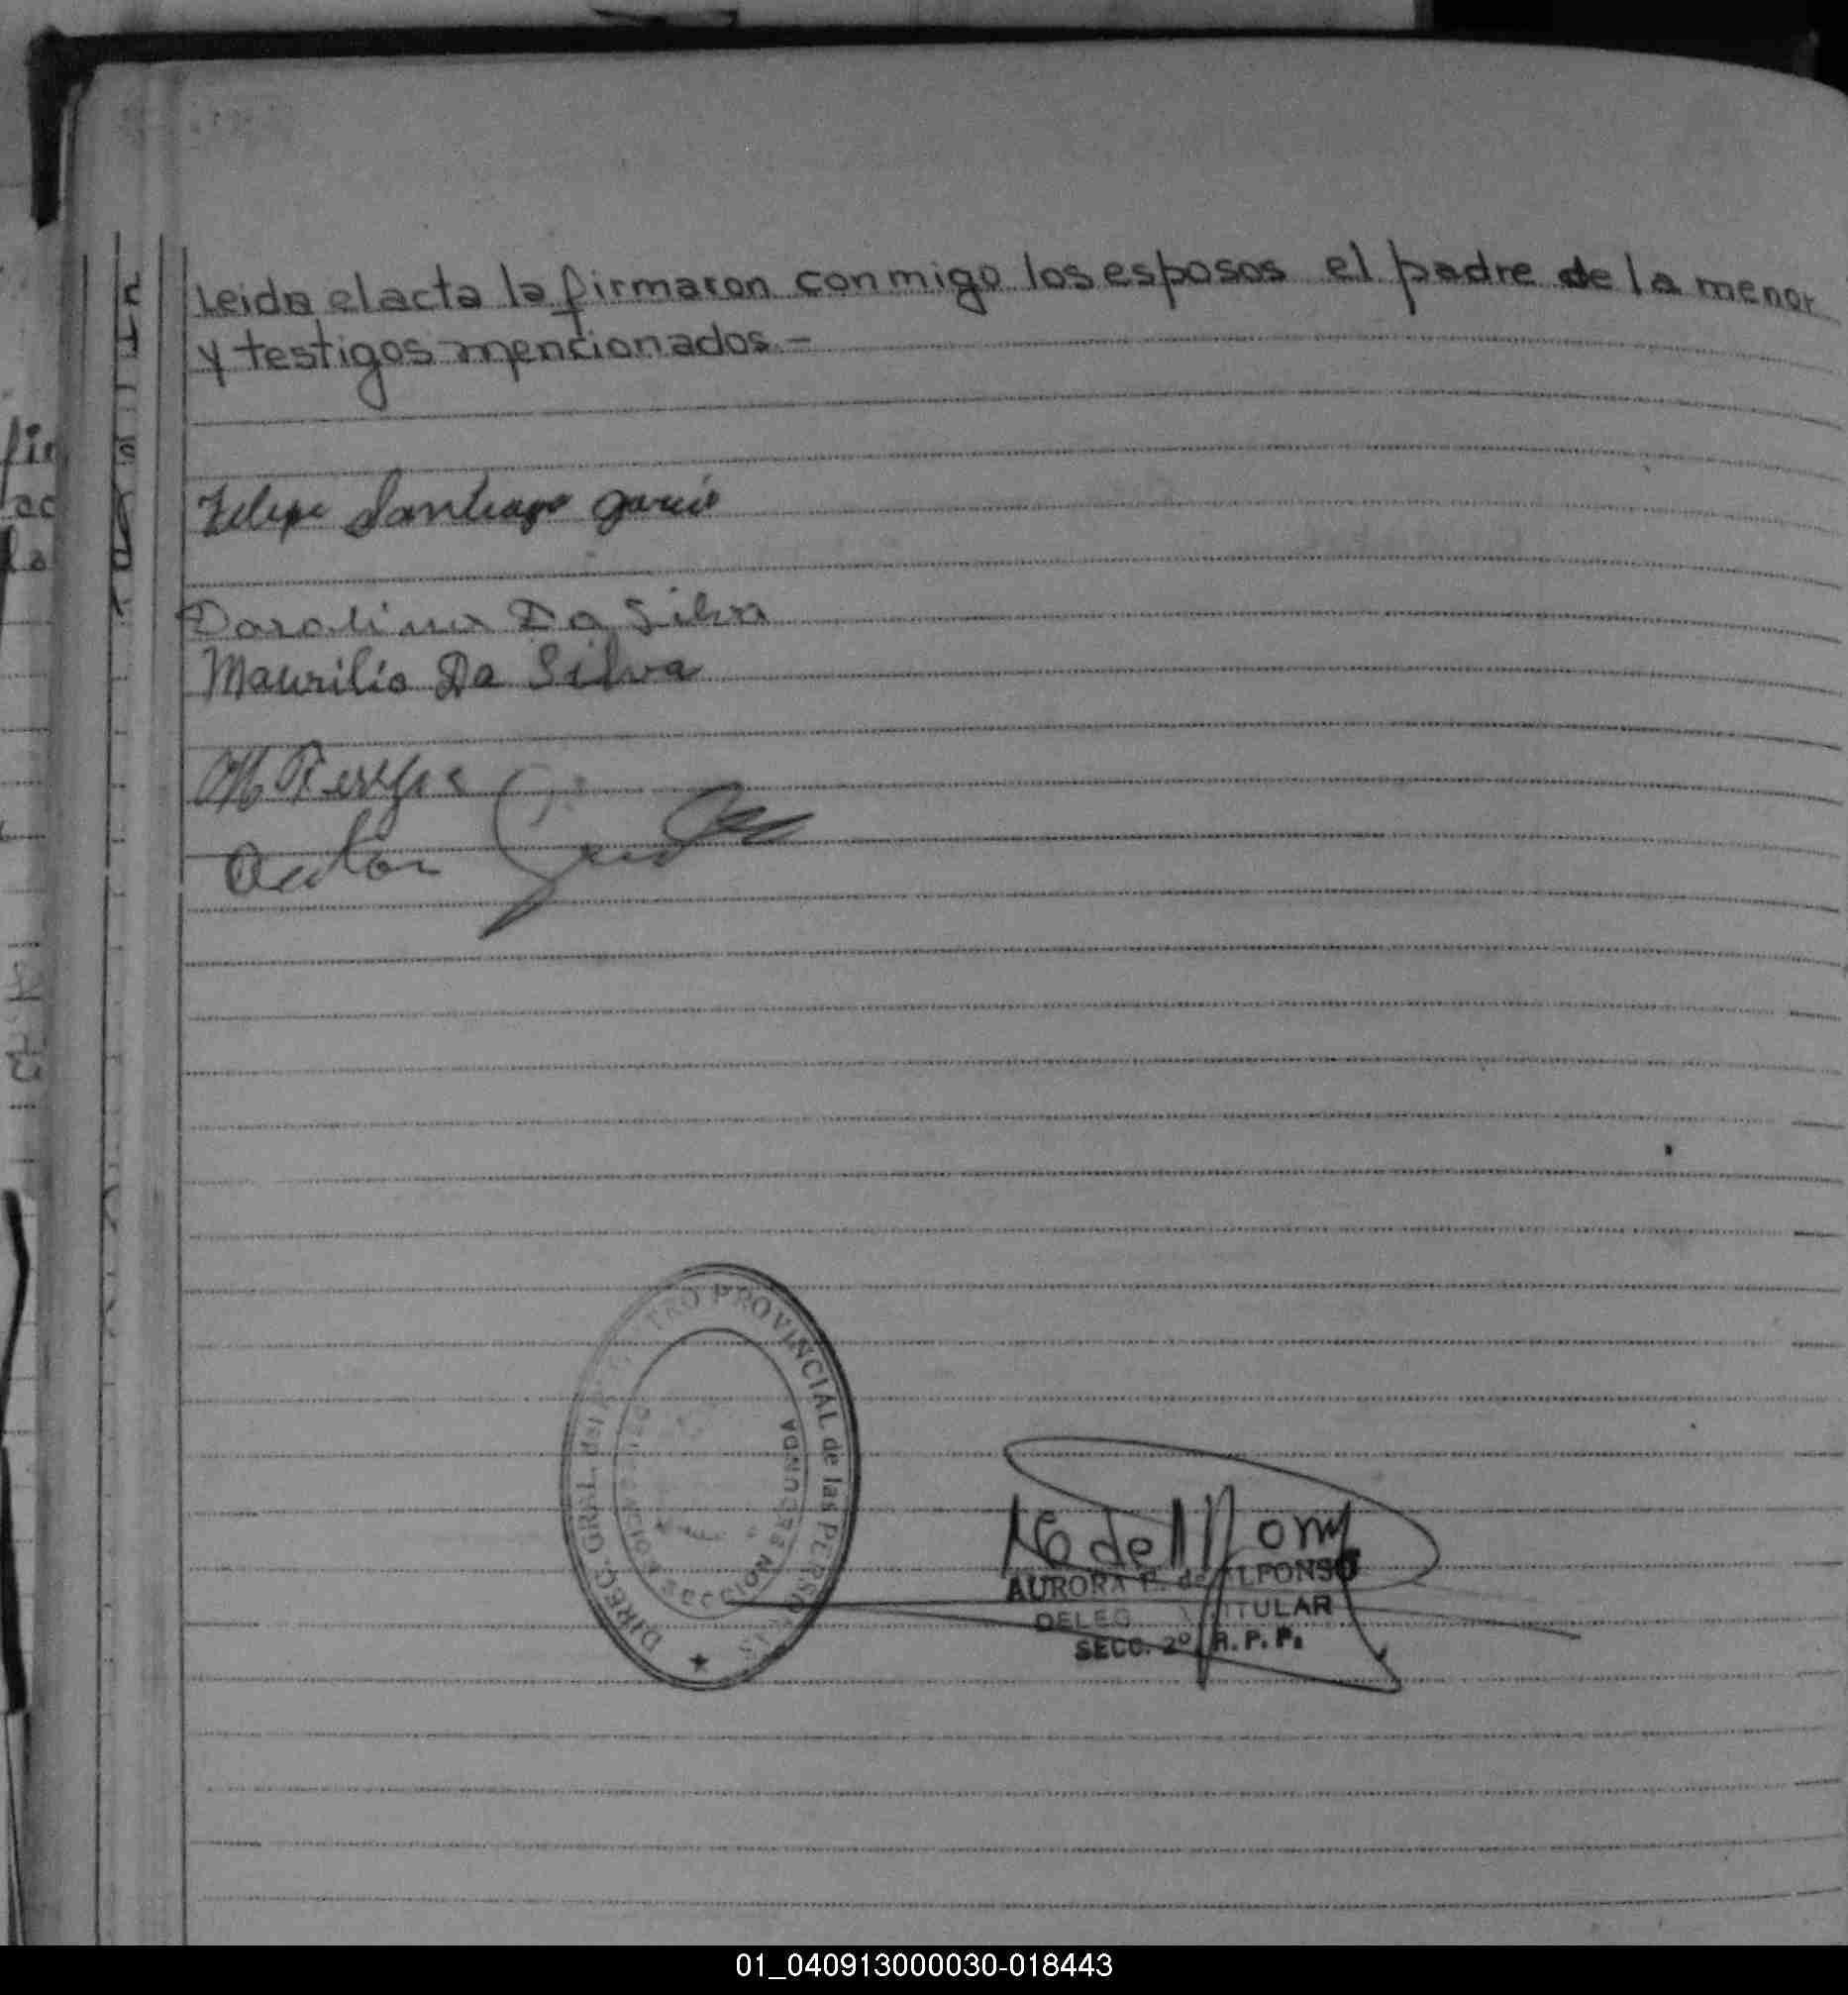 Leida el acta la firmaron conmigo los esposos el padre de la menor
y testigos mencionados.-
Felipe Santiago Garcia
Doralina Da Silva
Maurilio Da Silva
DIREC. GRAL. del REGISTRO PROVINCIAL de las PERSONAS
SECCION SEGUNDA
AURORA de ALFONSO
TITULAR
SECC. 2º R.P.P.
01_040913000030-018443